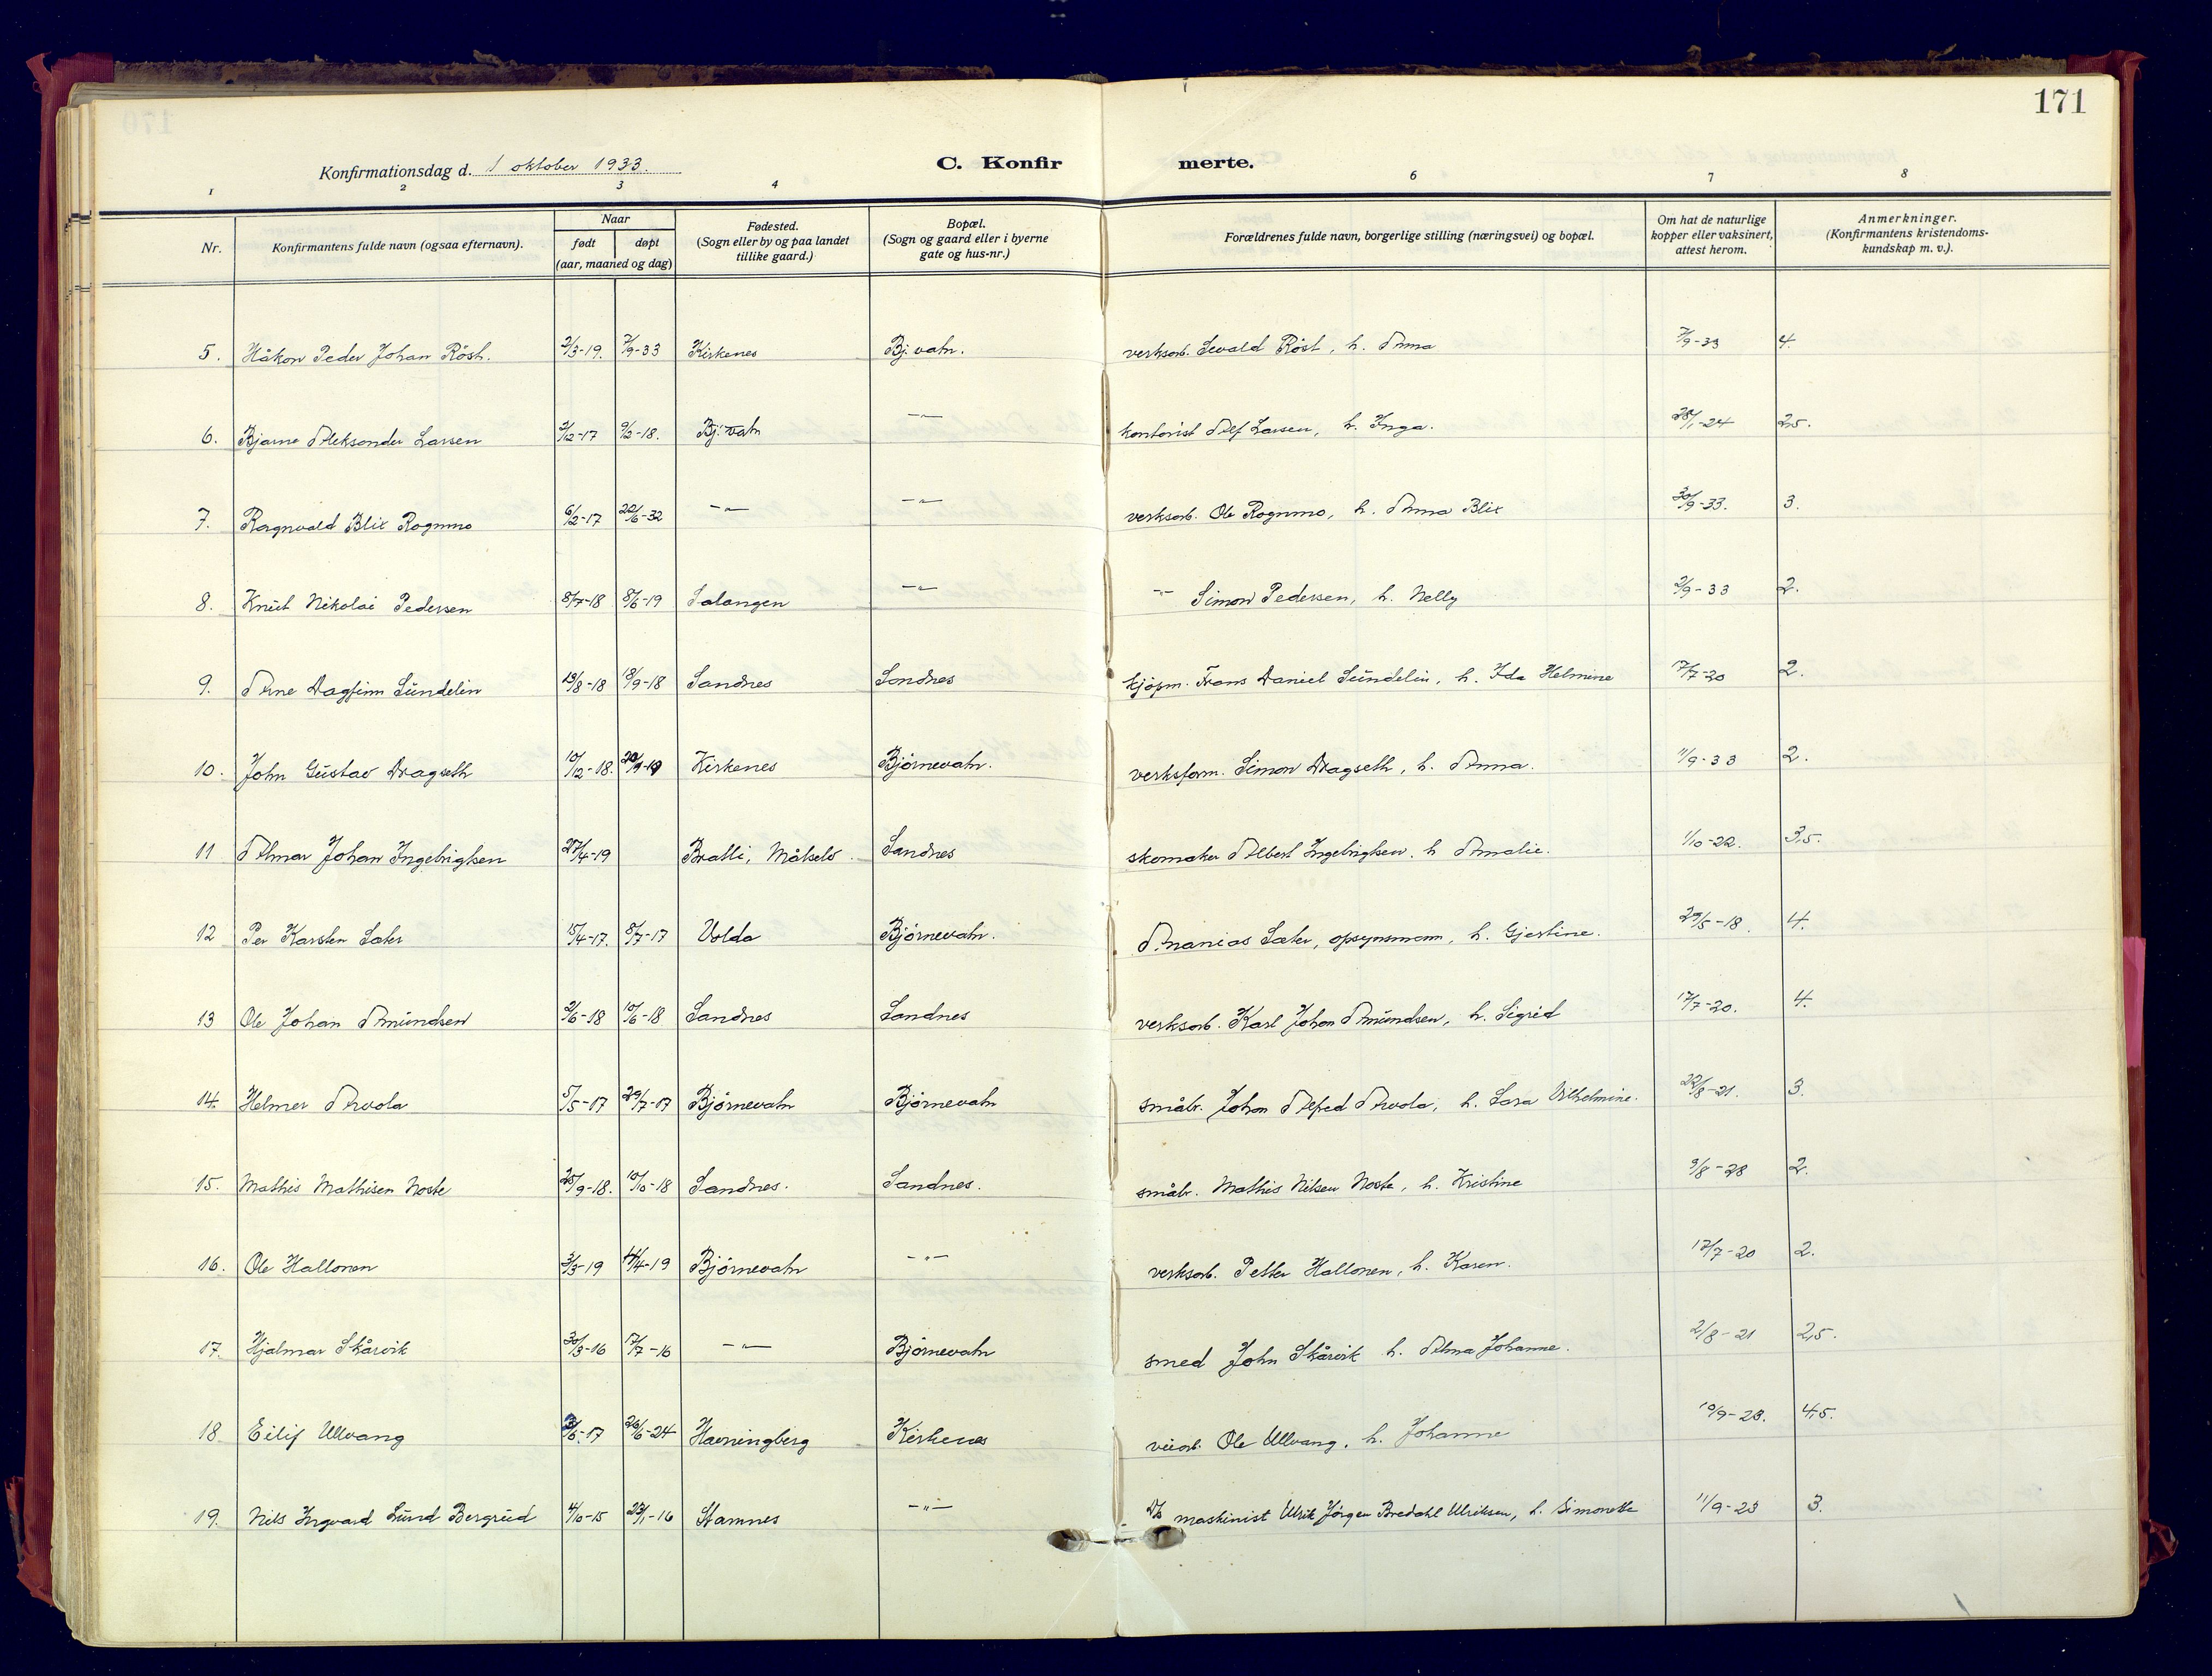 171
Konfirmationsdag d. 1 oktober 1933.
C. Konfirmerte.
1 2 3 4 6 7 8
Nr. Konfirmantens fulde navn (ogsaa efternavn). Naar født døpt (aar, maaned og dag) Fødested. (Sogn eller by og paa landet tillike gaard.) Bopæl. (Sogn og gaard eller i byerne gate og hus-nr.) Forældrenes fulde navn, borgerlige stilling (næringsvei) og bopæl. Om hat de naturlige kopper eller vaksinert, attest herom. Anmerkninger. (Konfirmantens kristendoms-kundskap m. v.).
5. Håkon Peder Johan Røst. 2/3-19. 7/9-33 Kirkenes Bj.vatn. verksarb. Sevald Røst, h. Anna 7/9-33 4.
6. Bjarne Aleksander Larsen 2/12-17 9/2-18. Bj.vatn -"- kontorist Alf Larsen, h. Inga. 28/1-24 2,5.
7. Ragnvald Blix Rognmo 6/2-17 22/6-32 -"- -"- verksarb. Ole Rognmo, h. Anna Blix 30/9-33. 3.
8. Knut Nikolai Pedersen 8/7-18 8/6-19 Salangen -"- -"- Simon Pedersen, h. Nelly 2/9-33 2.
9. Arne Dagfinn Sundelin 19/8-18 18/9-18 Sandnes Sandnes kjøpm. Frans Daniel Sundelin, h. Ida Helmine 17/7-20 2.
10. John Gustav Dragseth 10/12-18. Kirkenes Bjørnevatn. verksform. Simon Dragseth, h. Anna. 11/9-33 2.
11 Almar Johan Ingebrigtsen 27/4-19 Bratli, Målselv. Sandnes skomaker Albert Ingebrigtsen, h Amalie. 1/10-22. 3,5.
12 Per Karsten Sæter 15/4-17. 8/7-17 Volda Bjørnevatn. Ananias Sæter, opsynsmann, h. Gjertine. 29/5-18. 4.
13 Ole Johan Amundsen 2/6-18 10/6-18 Sandnes Sandnes verksarb. Karl Johan Amundsen, h. Sigrid 17/7-20. 4.
14. Helmer Arvola 5/5-17 29/7-17 Bjørnevatn Bjørnevatn småbr. Johan Alfred Arvola, h. Sara Vilhelmine. 22/8-21. 3.
15. Mathis Mathisen Noste 25/9-18. 10/10-18 Sandnes. Sandnes. småbr. Mathis Nilsen Noste, h. Kristine 9/8-28 2.
16. Ole Hallonen 3/3-19 14/4-19 Bjørnevatn -"- verksarb. Petter Hallonen, h. Karen. 17/7-20 2.
17. Hjalmar Skårvik 30/3-16 17/7-16 -"- Bjørnevatn smed John Skårvik h. Alma Johanne. 2/8-21 2,5.
18 Eilif Ullvang /6-17 26/6-24 Havningberg Kirkenes veiarb. Ole Ullvang, h. Johanne 10/9-23. 4,5.
19. Nils Ingvard Lund Bergrud 4/10-15 23/1-16 Stamnes -"- maskinist Ulrik Jørgen Bredahl Ulriksen, h. Simonette 11/9-23 3.